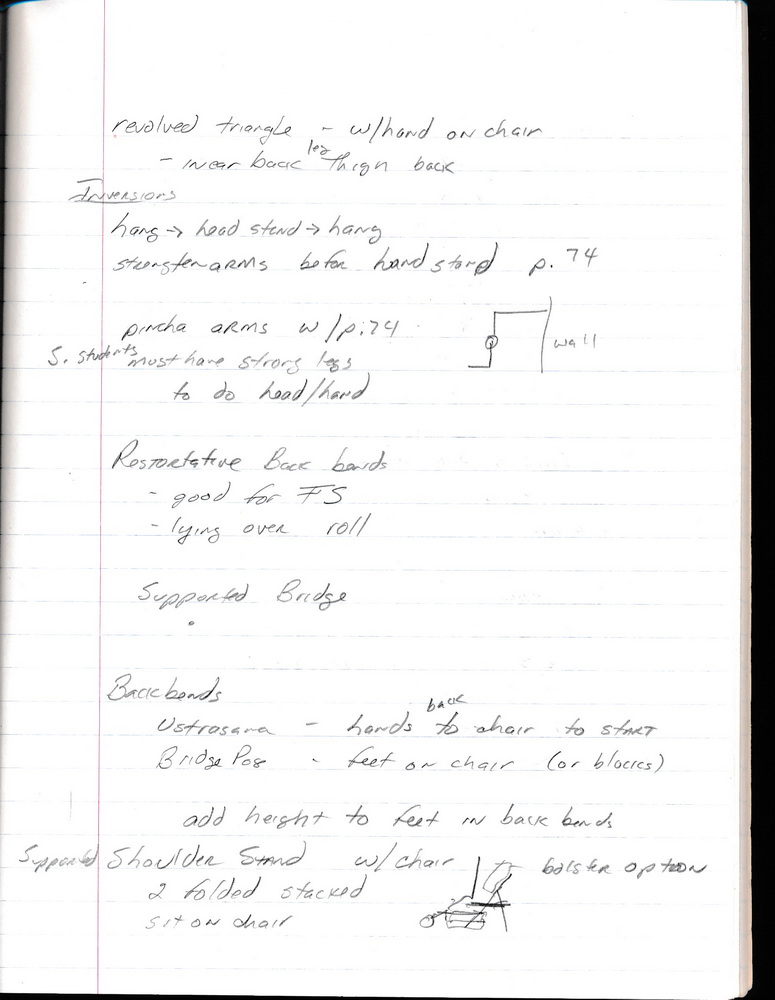 revolved triangle - w/hand on chair
- inear back leg thign back
Inversions
hang → head stand → hang
strengten arms befor hand stand p. 74
pincha arms w/p.74
wall
S. students must have strong legs
to do head/hand
Restortative Back bends
- good for FS
- lying over roll
Supported Bridge
Backbends
Ustrasana - hands back to chair to start
Bridge Pose - feet on chair (or blocks)
add height to feet in back bends
Supported Shoulder Stand w/ chair bolster option
2 folded stacked
sit on chair